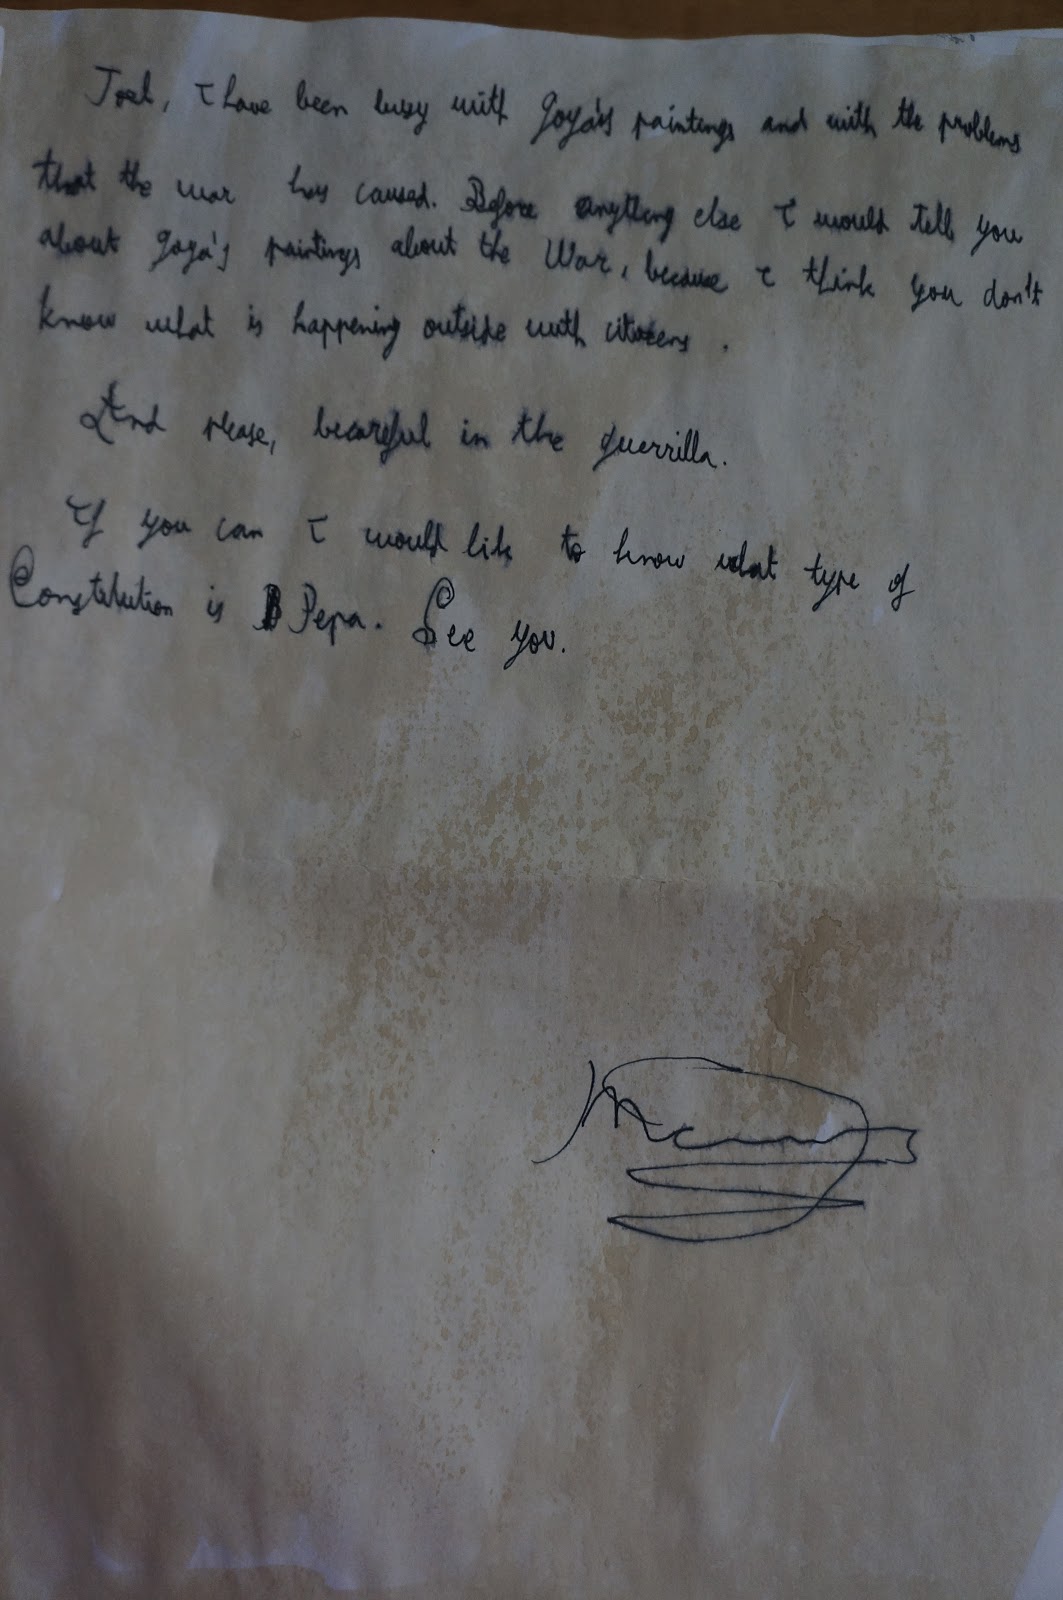 Joel, I have been busy with Goya's paintings and with the problems
that the war has caused. Before anything else I would tell you
about Goya's paintings about the War, because I think you don't
know what is happening outside with citizens.
And please, becareful in the guerrilla.
If you can I would like to know what type of
Constitution is Pepa. See you.